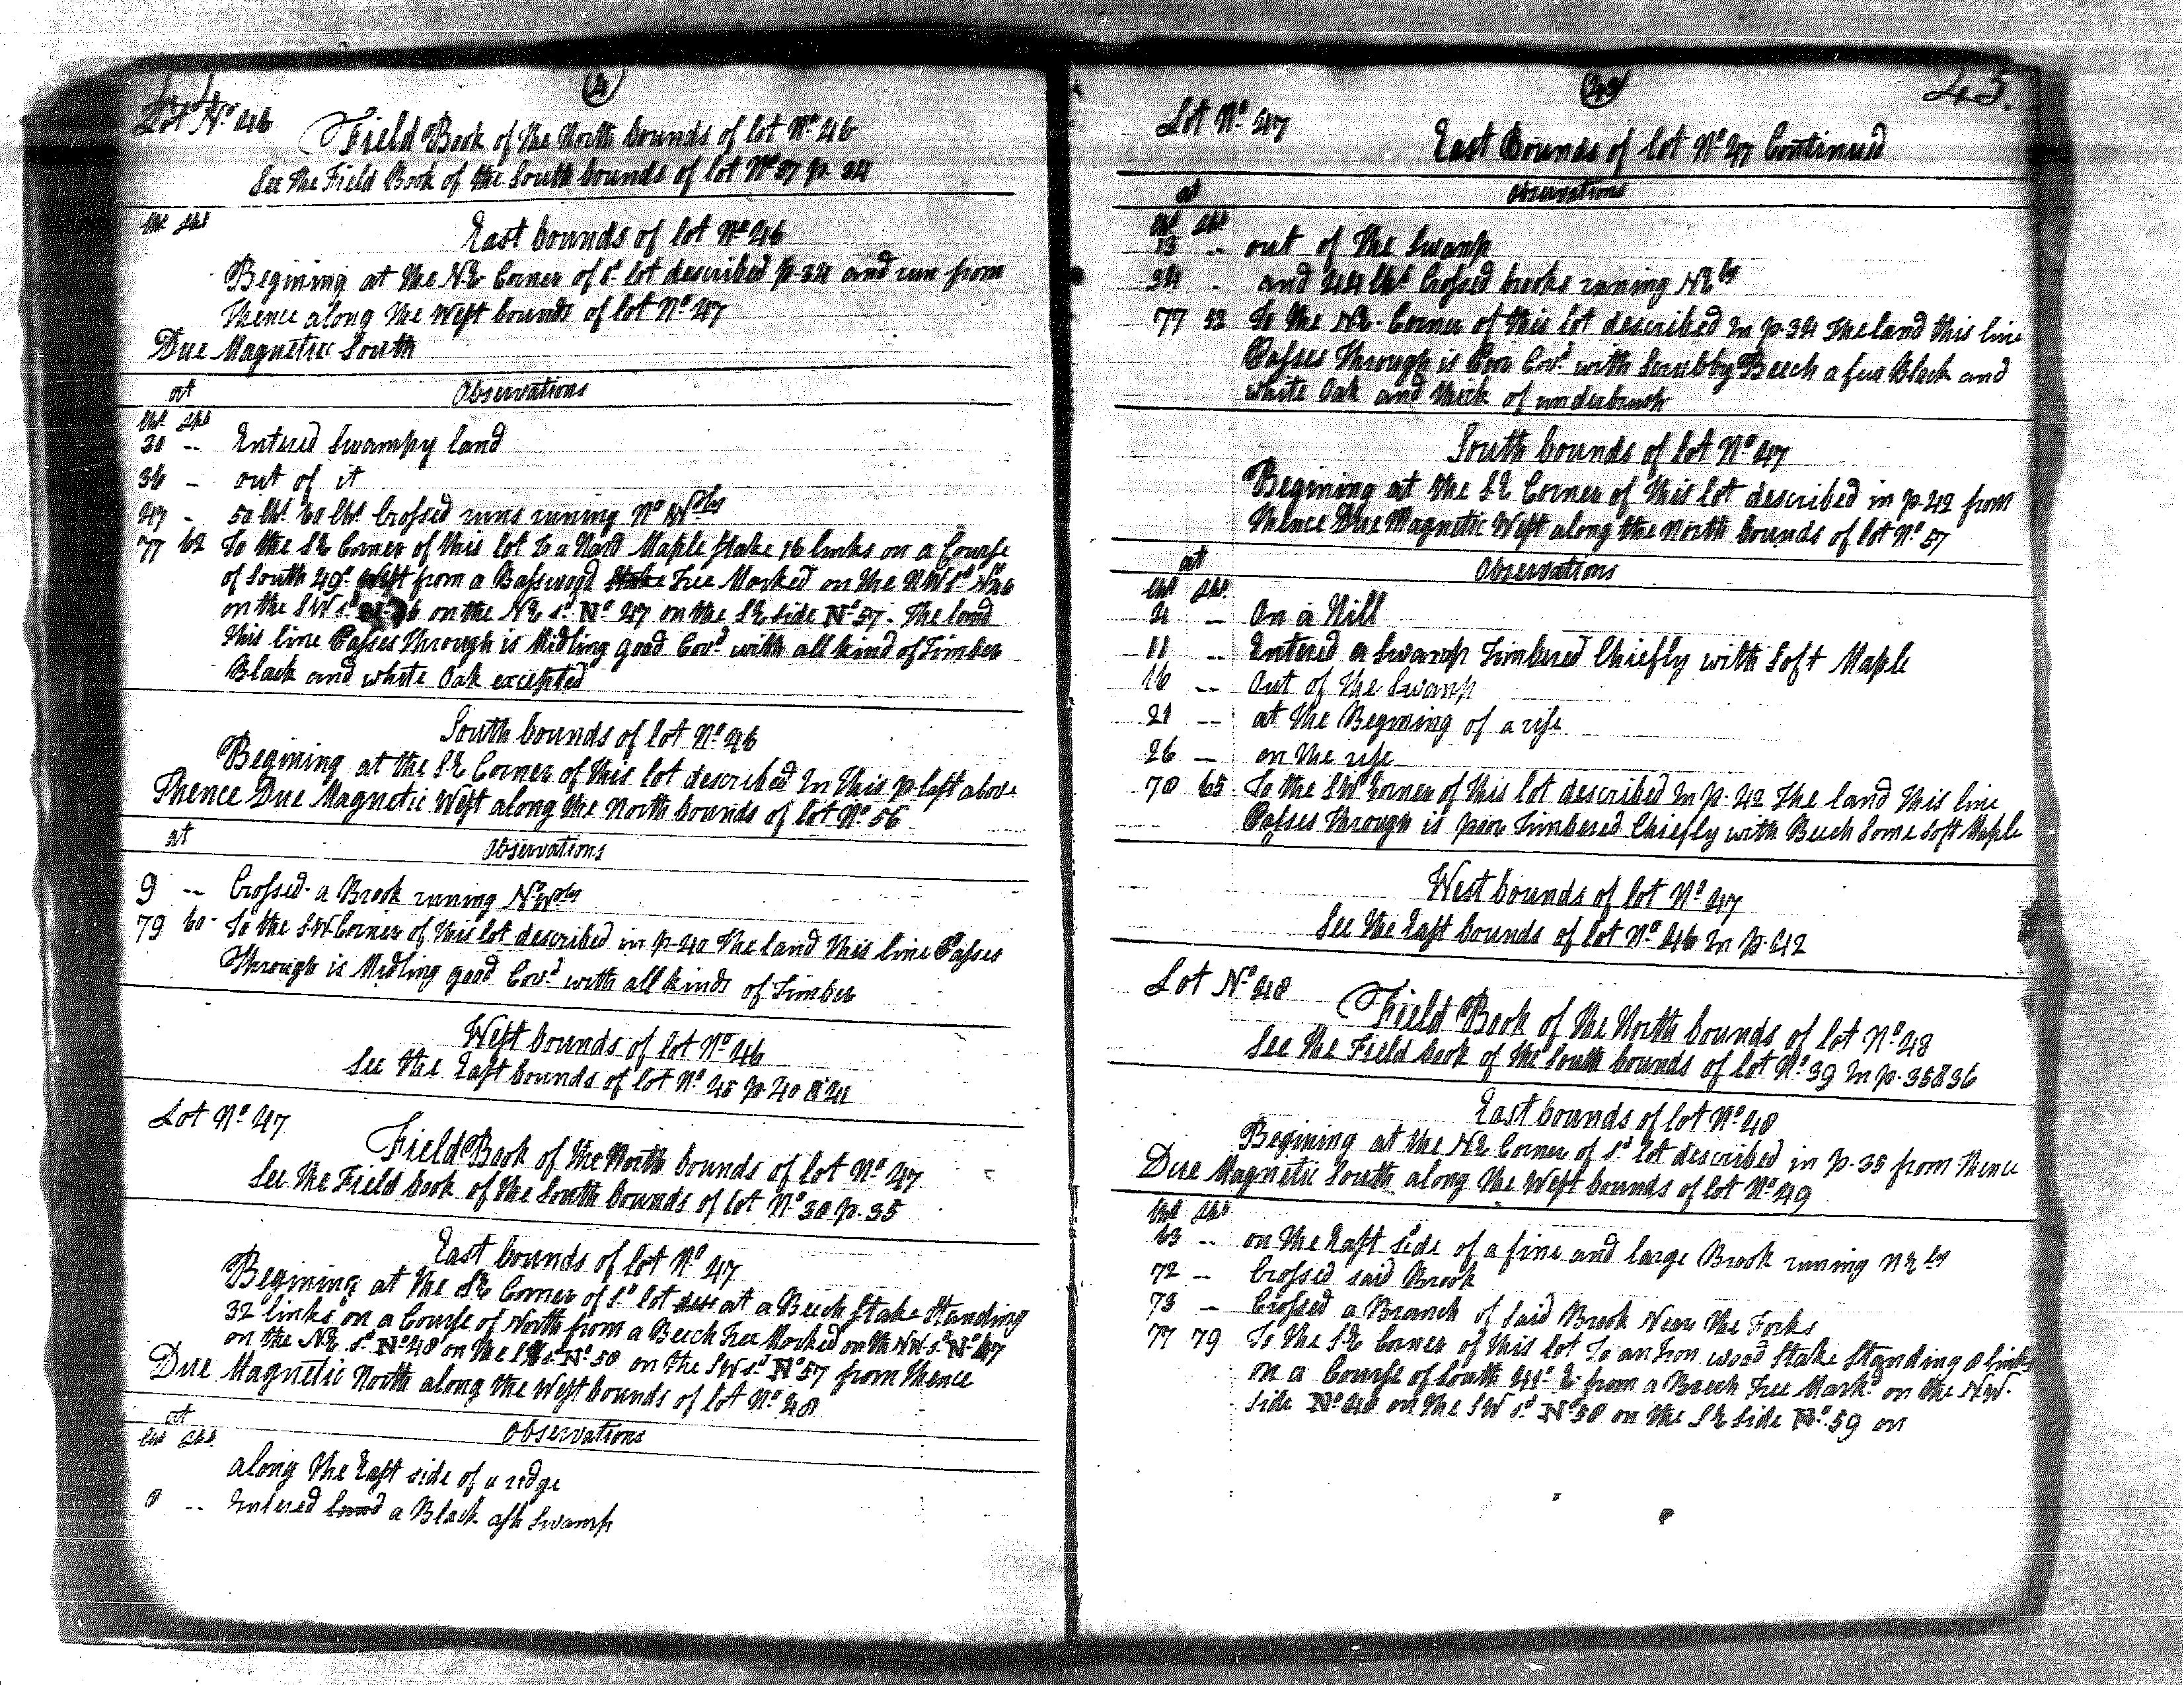 44
Lot No 46
Field Book of the North bounds of lot No 46
See the Field Book of the South bounds of lot No 37 p. 34
Chs Lks
East bounds of lot No 46
Begining at the NE Corner of sd lot described p. 34 and run from
Thence along the West bounds of lot No 47
Due Magnetic South
at Observations
Chs Lks
30 -- Entered Swampy land
36 - out of it
47 - 50 Chs 60 Chs Crossed runs runing No Wtly
77 62 To the SE Corner of this lot to a Hard Maple Stake 16 links on a Course
of South 49° West from a Basswood Stake Tree Marked on the NW sd No 46
on the SW sd 56 on the NE sd No 47 on the SE side No 57. The land
this line Passes through is Midling good Covd with all kind of Timber
Black and white Oak excepted
South bounds of lot No 46
Begining at the SE Corner of this lot described In this p. last above
Thence Due Magnetic West along the North bounds of lot No 56
at Observations
9 -- Crossed a Brook runing No Wtly
79 60 To the SW Corner of this lot described in p. 40 The land this line Passes
Through is Midling good Covd with all kinds of Timber
West bounds of lot No 46
See the East bounds of lot No 45 p. 40 & 41
Lot No 47
Field Book of the North bounds of lot No 47
See the Field book of the South bounds of lot No 38 p. 35
East bounds of lot No 47
Begining at the SE Corner of sd lot at a Beech Stake Standing
32 links on a Course of North from a Beech Tree Marked on the NW sd No 47
on the NE sd No 48 on the SE sd No 58 on the SW sd No 57 from Thence
Due Magnetic North along the West bounds of lot No 48
at Observations
Chs Lks
along the East side of a ridge
8 -- Entered land a Black ash Swamp
43
45.
Lot No 47
East Bounds of lot No 47 Continued
at Observations
Chs Lks
13 -- out of the Swamp
34 - and 44 Chs Crossed brooks runing NEly
77 12 To the NE Corner of this lot described In p. 34 The land this line
Passes through is Poor Covd with Scrubby Beech a few Black and
white Oak and thick of underbrush
South bounds of lot No 47
Begining at the SE Corner of this lot described in p. 42 from
thence Due Magnetic West along the North bounds of lot No 57
at Observations
Chs Lks
4 -- On a Hill
11 -- Entered a Swamp Timbered Chiefly with Soft Maple
16 -- Out of the Swamp
21 -- at the Begining of a rise
26 -- on the rise
78 65 To the SW Corner of this lot described In p. 42 The land this line
Passes through is poor Timbered Chiefly with Beech Some Soft Maple
West bounds of lot No 47
See the East bounds of lot No 46 In p. 42
Lot No 48
Field Book of the North bounds of lot No 48
See the Field book of the South bounds of lot No 39 In p. 35 & 36
East bounds of lot No 48
Begining at the NE Corner of sd lot described in p. 35 from thence
Due Magnetic South along the West bounds of lot No 49
Chs Lks
63 -- on the East side of a fine and large Brook runing NEly
72 - Crossed said Brook
73 - Crossed a Branch of said Brook Near the Forks
77 79 To the SE Corner of this lot To an Iron wood Stake Standing 8 links
on a Course of South 41° E from a Beech Tree Markd on the NW.
side No 48 on the SW sd No 58 on the SE side No 59 on